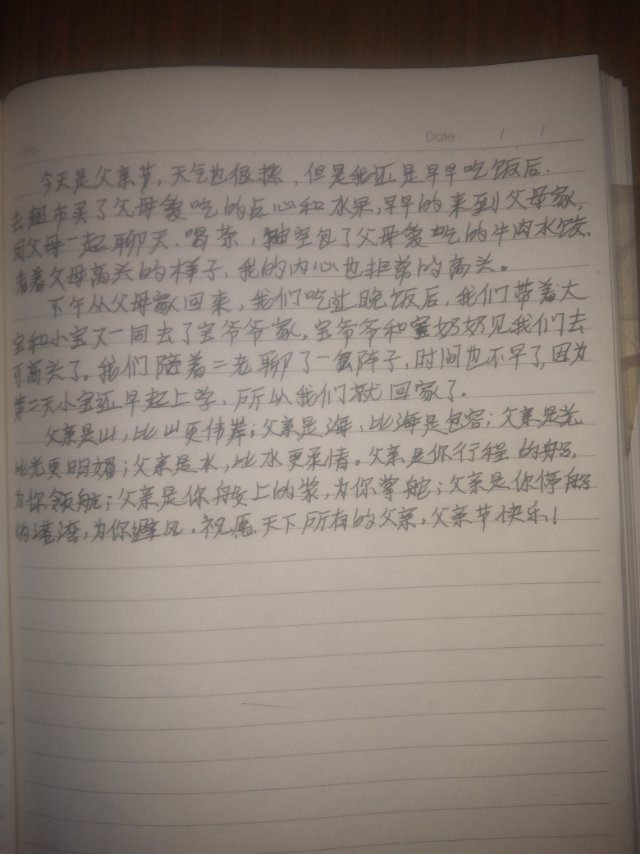 No.
Date: / /
今天是父亲节,天气也很热,但是我还是早早吃饭后,
去超市买了父母爱吃的点心和水果,早早的来到父母家,
同父母一起聊天、喝茶,抽空包了父母爱吃的牛肉水饺.
看着父母高兴的样子,我的内心也非常的高兴。
下午从父母家回来,我们吃过晚饭后,我们带着大
宝和小宝又一同去了宝爷爷家,宝爷爷和宝奶奶见我们去
可高兴了,我们陪着二老聊了一会阵子,时间也不早了,因为
第二天小宝还早起上学,所以我们就回家了.
父亲是山,比山更伟岸;父亲是海,比海更包容;父亲是光
比光更明媚;父亲是水,比水更柔情。父亲是你行程的船,
为你领航;父亲是你船上的桨,为你掌舵;父亲是你停船
的港湾,为你避风.祝愿天下所有的父亲,父亲节快乐!